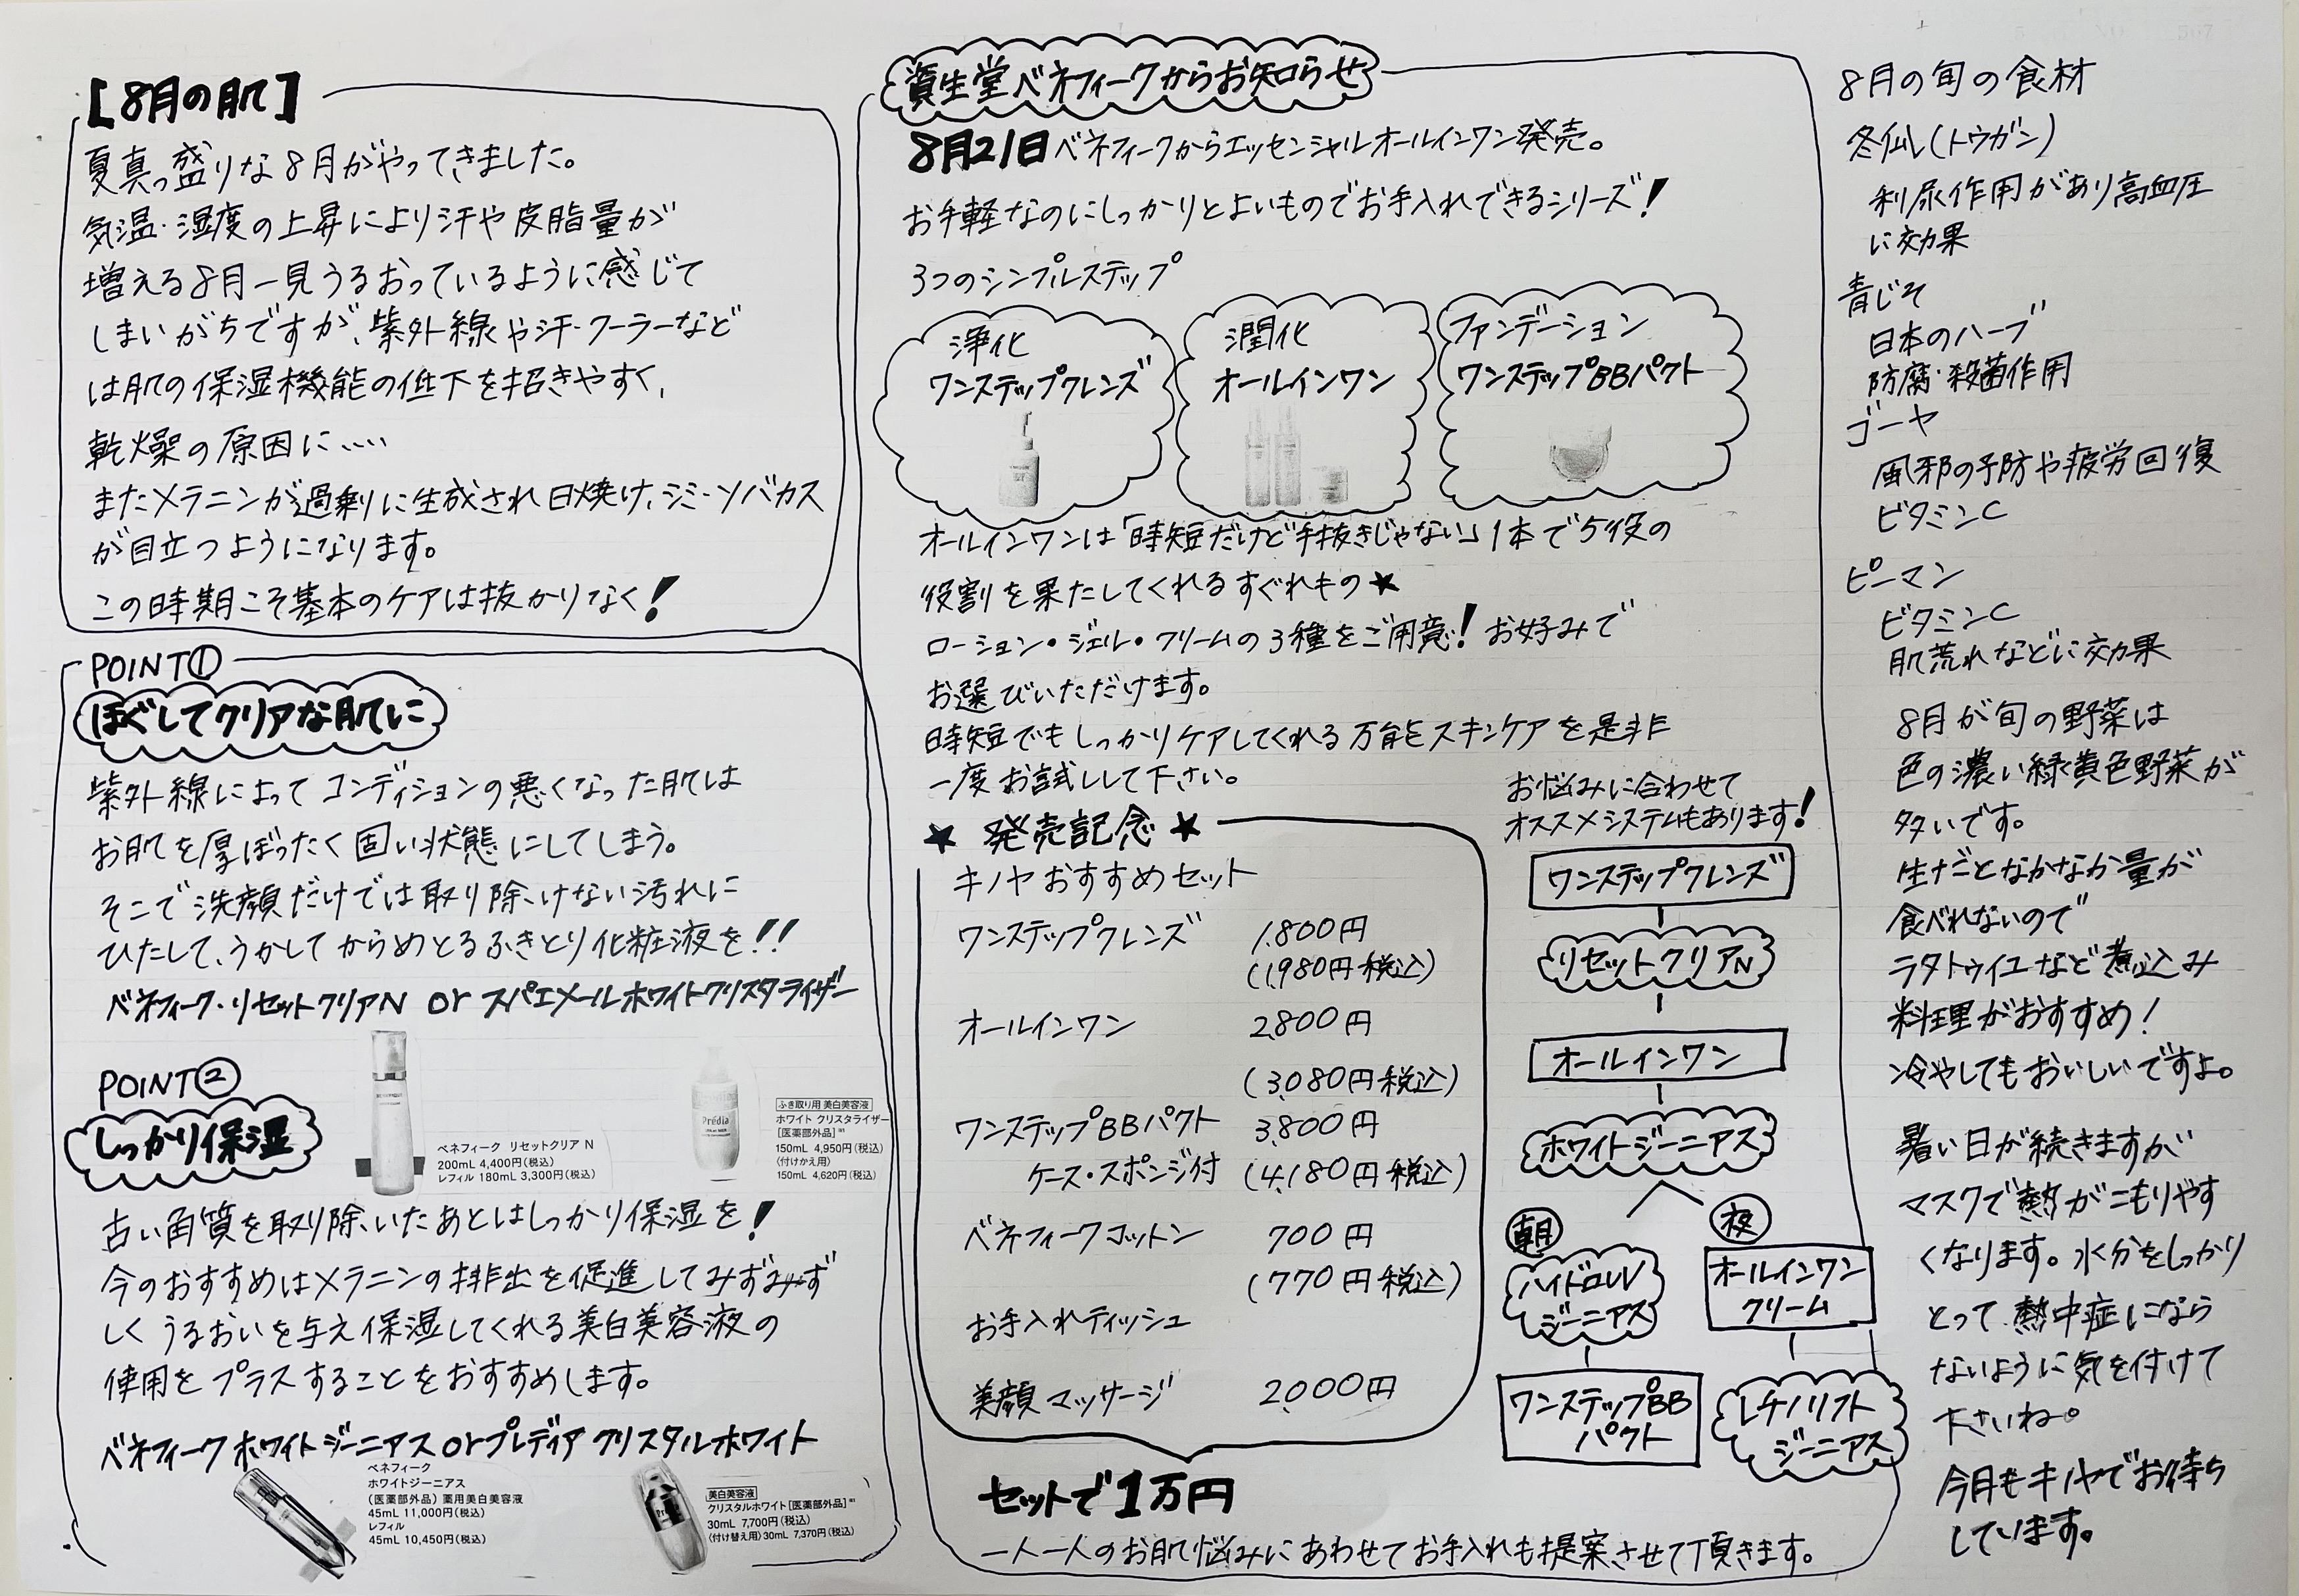 [8月の肌]
夏真っ盛りな8月がやってきました。
気温・湿度の上昇により汗や皮脂量が
増える8月一見うるおっているように感じて
しまいがちですが、紫外線や汗・クーラーなど
は肌の保湿機能の低下を招きやすく、
乾燥の原因に……
またメラニンが過剰に生成され日焼け、シミ・ソバカス
が目立つようになります。
この時期こそ基本のケアは抜かりなく!
POINT①
ほぐしてクリアな肌に
紫外線によってコンディションの悪くなった肌は
お肌を厚ぼったく固い状態にしてしまう。
そこで洗顔だけでは取り除けない汚れに
ひたして、うかしてからめとるふきとり化粧液を!!
ベネフィーク・リセットクリアN or スパエメールホワイトクリスタライザー
ベネフィーク リセットクリア N
200mL 4,400円(税込)
レフィル 180mL 3,300円(税込)
ふき取り用 美白美容液
ホワイト クリスタライザー
[医薬部外品]
150mL 4,950円(税込)
〈付けかえ用〉
150mL 4,620円(税込)
POINT②
しっかり保湿
古い角質を取り除いたあとはしっかり保湿を!
今のおすすめはメラニンの排出を促進してみずみず
しくうるおいを与え保湿してくれる美白美容液の
使用をプラスすることをおすすめします。
ベネフィークホワイトジーニアスorプレディア クリスタルホワイト
ベネフィーク
ホワイトジーニアス
(医薬部外品) 薬用美白美容液
45mL 11,000円(税込)
レフィル
45mL 10,450円(税込)
美白美容液
クリスタルホワイト[医薬部外品]
30mL 7,700円(税込)
〈付け替え用〉30mL 7,370円(税込)
資生堂ベネフィークからお知らせ
8月21日ベネフィークからエッセンシャルオールインワン発売。
お手軽なのにしっかりとよいものでお手入れできるシリーズ!
3つのシンプルステップ
浄化
ワンステップクレンズ
潤化
オールインワン
ファンデーション
ワンステップBBパクト
オールインワンは「時短だけど手抜きじゃない」1本で5役の
役割を果たしてくれるすぐれもの★
ローション・ジェル・クリームの3種をご用意! お好みで
お選びいただけます。
時短でもしっかりケアしてくれる万能スキンケアを是非
一度お試しして下さい。
★ 発売記念 ★
キノヤおすすめセット
ワンステップクレンズ 1,800円
(1,980円税込)
オールインワン 2,800円
(3,080円税込)
ワンステップBBパクト 3,800円
ケース・スポンジ付 (4,180円税込)
ベネフィークコットン 700円
(770円税込)
お手入れティッシュ
美顔マッサージ 2,000円
セットで1万円
お悩みに合わせて
オススメシステムもあります!
ワンステップクレンズ
リセットクリアN
オールインワン
ホワイトジーニアス
朝
ハイドロUV
ジーニアス
ワンステップBB
パクト
夜
オールインワン
クリーム
レチノリフト
ジーニアス
一人一人のお肌悩みにあわせてお手入れも提案させて頂きます。
8月の旬の食材
冬仙(トウガン)
利尿作用があり高血圧
に効果
青じそ
日本のハーブ
防腐・殺菌作用
ゴーヤ
風邪の予防や疲労回復
ビタミンC
ピーマン
ビタミンC
肌荒れなどに効果
8月が旬の野菜は
色の濃い緑黄色野菜が
多いです。
生だとなかなか量が
食べれないので
ラタトゥイユなど煮込み
料理がおすすめ!
冷やしてもおいしいですよ。
暑い日が続きますが
マスクで熱がこもりやす
くなります。水分をしっかり
とって熱中症になら
ないように気を付けて
下さいね。
今月もキノヤでお待ち
しています。